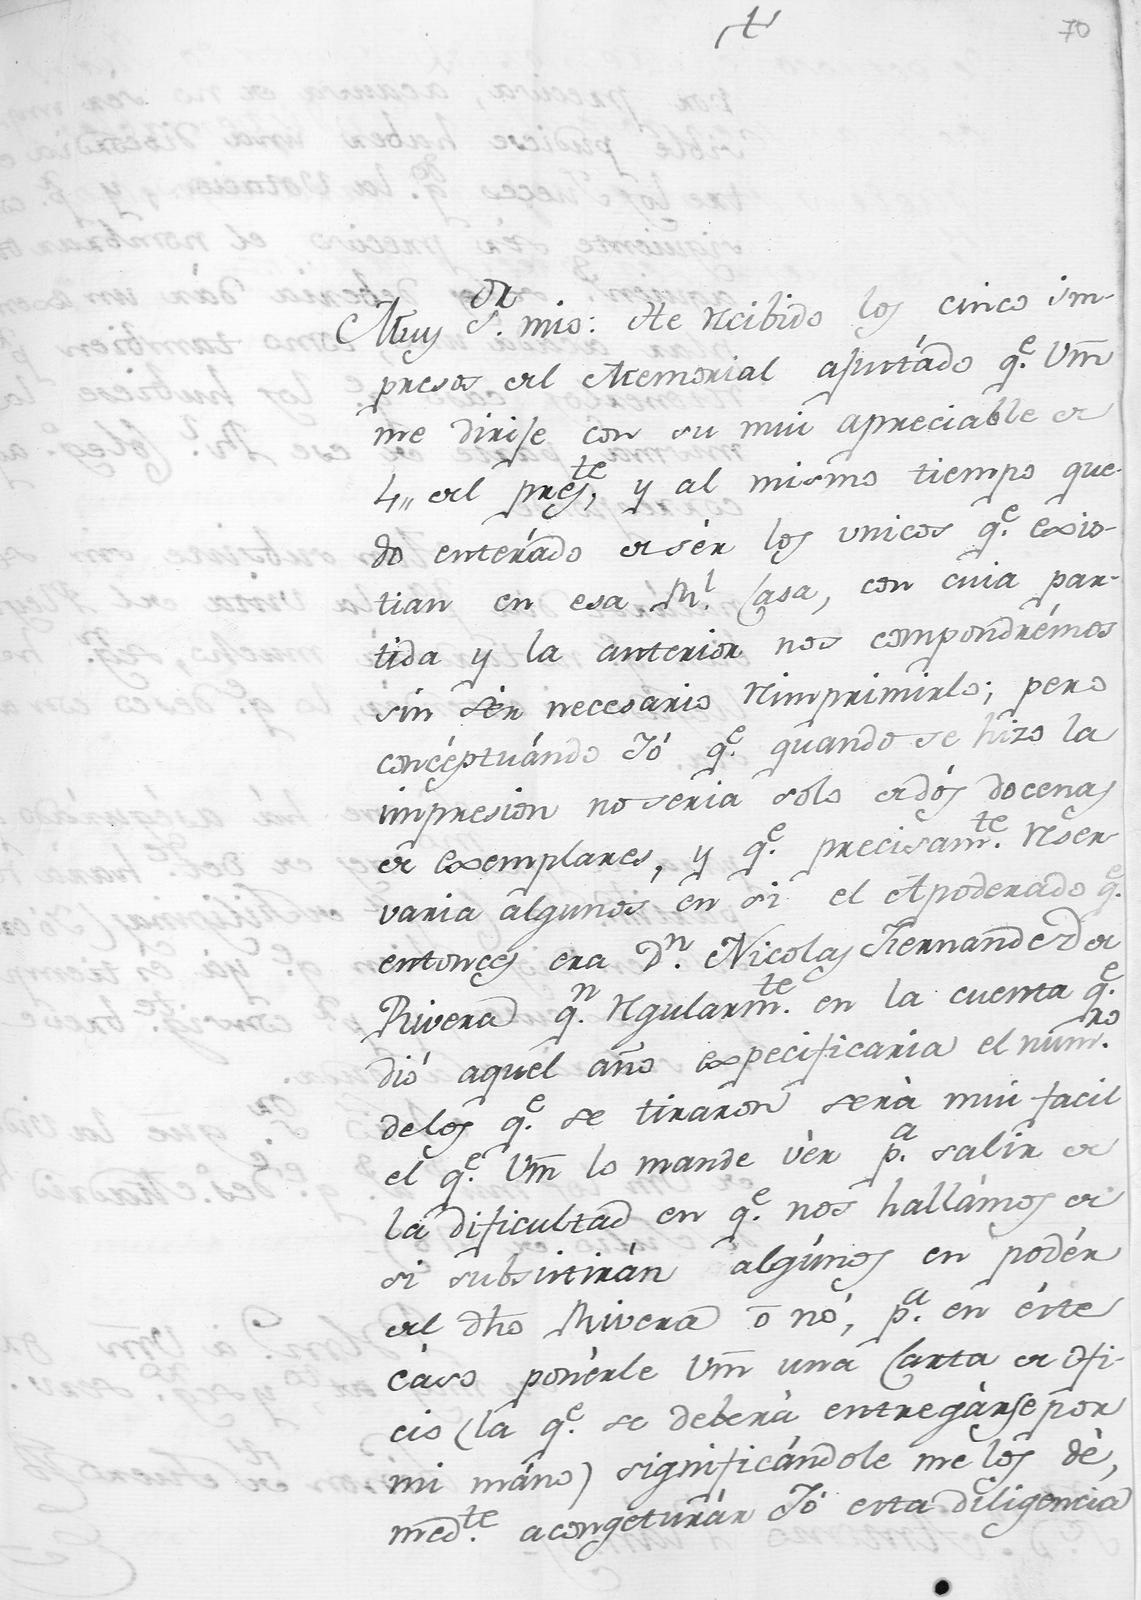 70
Muy S.or mio: He recibido los cinco im-
presos del Memorial ajustádo q.e Vm
me dirije con su mui apreciable de
4,, del pres.te, y al mismo tiempo que-
do enterádo de sér los unicos q.e exis-
tian en esa R.l Casa, con cuia par-
tida y la anterior nos compondrémos
sin sér necesario reimprimirlo; pero
concéptuándo Jó q.e quando se hizo la
impresion no seria sólo de dós docenas
de exemplares, y q.e precisam.te reser
varia algunos en si el Apoderado q.e
entonces era D.n Nicolas Fernandez de
Rivera q.n regularm.te en la cuenta q.e
dió aquel año expecificaria el num.ro
delos q.e se tiraron será mui facil
el q.e Vm lo mande vér p.a salir de
la dificultad en q.e nos hallámos de
si subsistirán algúnos en podér
del dho Rivera ó nó, p.a en éste
cáso ponérle Vm una Carta de ofi-
cio (la q.e se deberá entregárse por
mi máno) significándole me los dé,
med.te acongeturár Jó esta diligencia